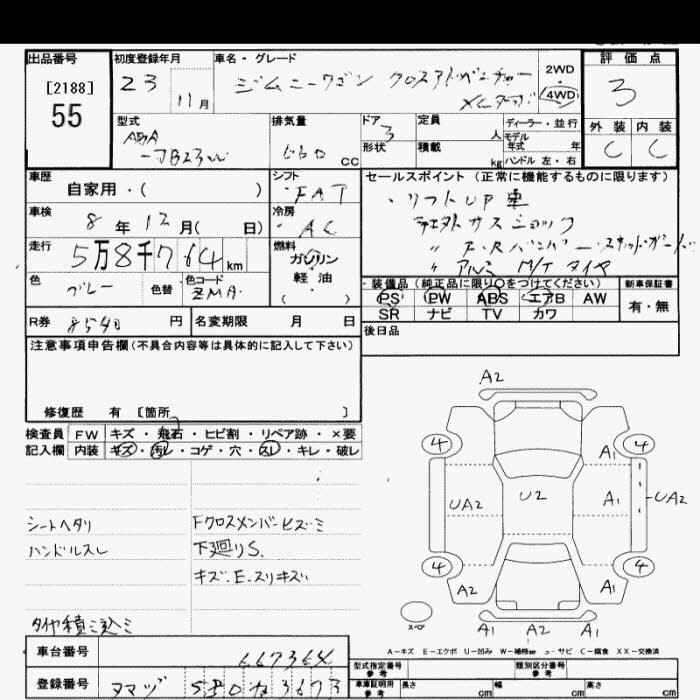 出品番号
[2188]
55
初度登録年月
23
11月
車名・グレード
ジムニーワゴン クロスアドベンチャー
XCターボ
2WD
4WD
評価点
3
外装 内装
C C
型式
ABA
-JB23W
排気量
660 CC
ドア 3
形状
定員
人
積載
kg
ディーラー・並行
モデル
年式 年
ハンドル 左・右
車歴
自家用・( )
シフト
・FAT
車検
8年12月( 日)
冷房
・AC
走行
5万8千764km
燃料
ガソリン
軽油
( ・ )
色
グレー
色替
色コード
ZMA
セールスポイント (正常に機能するものに限ります)
・リフトUP車
社外サスショック
〃 F.Rバンパー・スキッドガード
〃 アルミ M/Tタイヤ
・装備品(純正品に限り○をつけてください)
PS PW ABS エアB AW
SR ナビ TV カワ
新車保証書
有・無
R券 8540円
名変期限 月 日
後日品
注意事項申告欄(不具合内容等は具体的に記入して下さい)
修復歴 有 [箇所 ]
検査員
記入欄
FW キズ・飛石・ヒビ割・リペア跡・×要
内装 キズ・汚レ・コゲ・穴・スレ・キレ・破レ
シートヘタリ
ハンドルスレ
Fクロスメンバーヒズミ
下廻りS.
キズ.E.スリキズ
タイヤ積ミ込ミ
A2
4 4
A1
UA2 U2 A1 UA2
4 4
A2 A1
スペア
A1 A2 A1
A-キズ E-エクボ U-凹み W-補修跡 S-サビ C-腐食 XX-交換済
車台番号
667364
登録番号
タマツ 580 な 3673
型式指定番号
参考
類別区分番号
参考
車庫証明用
参考
長さ cm
幅 cm
高さ cm